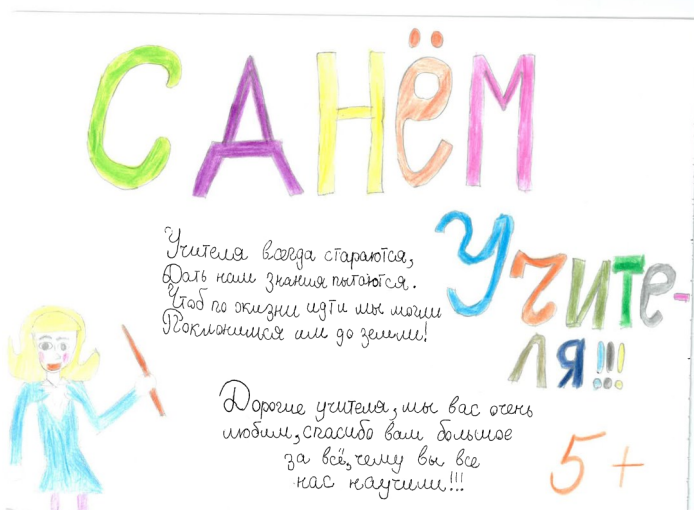 САНЁМ
Учите-
ля!!!
Учителя всегда стараются,
Дать нам знания пытаются.
Чтоб по жизни идти мы могли
Поклонимся им до земли!
Дорогие учителя, мы вас очень
любим, спасибо вам большое
за всё, чему вы все
нас научили!!!
5+